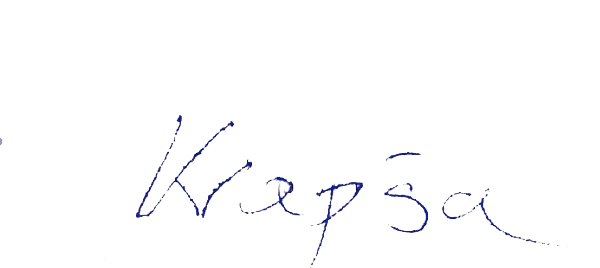 Krapša